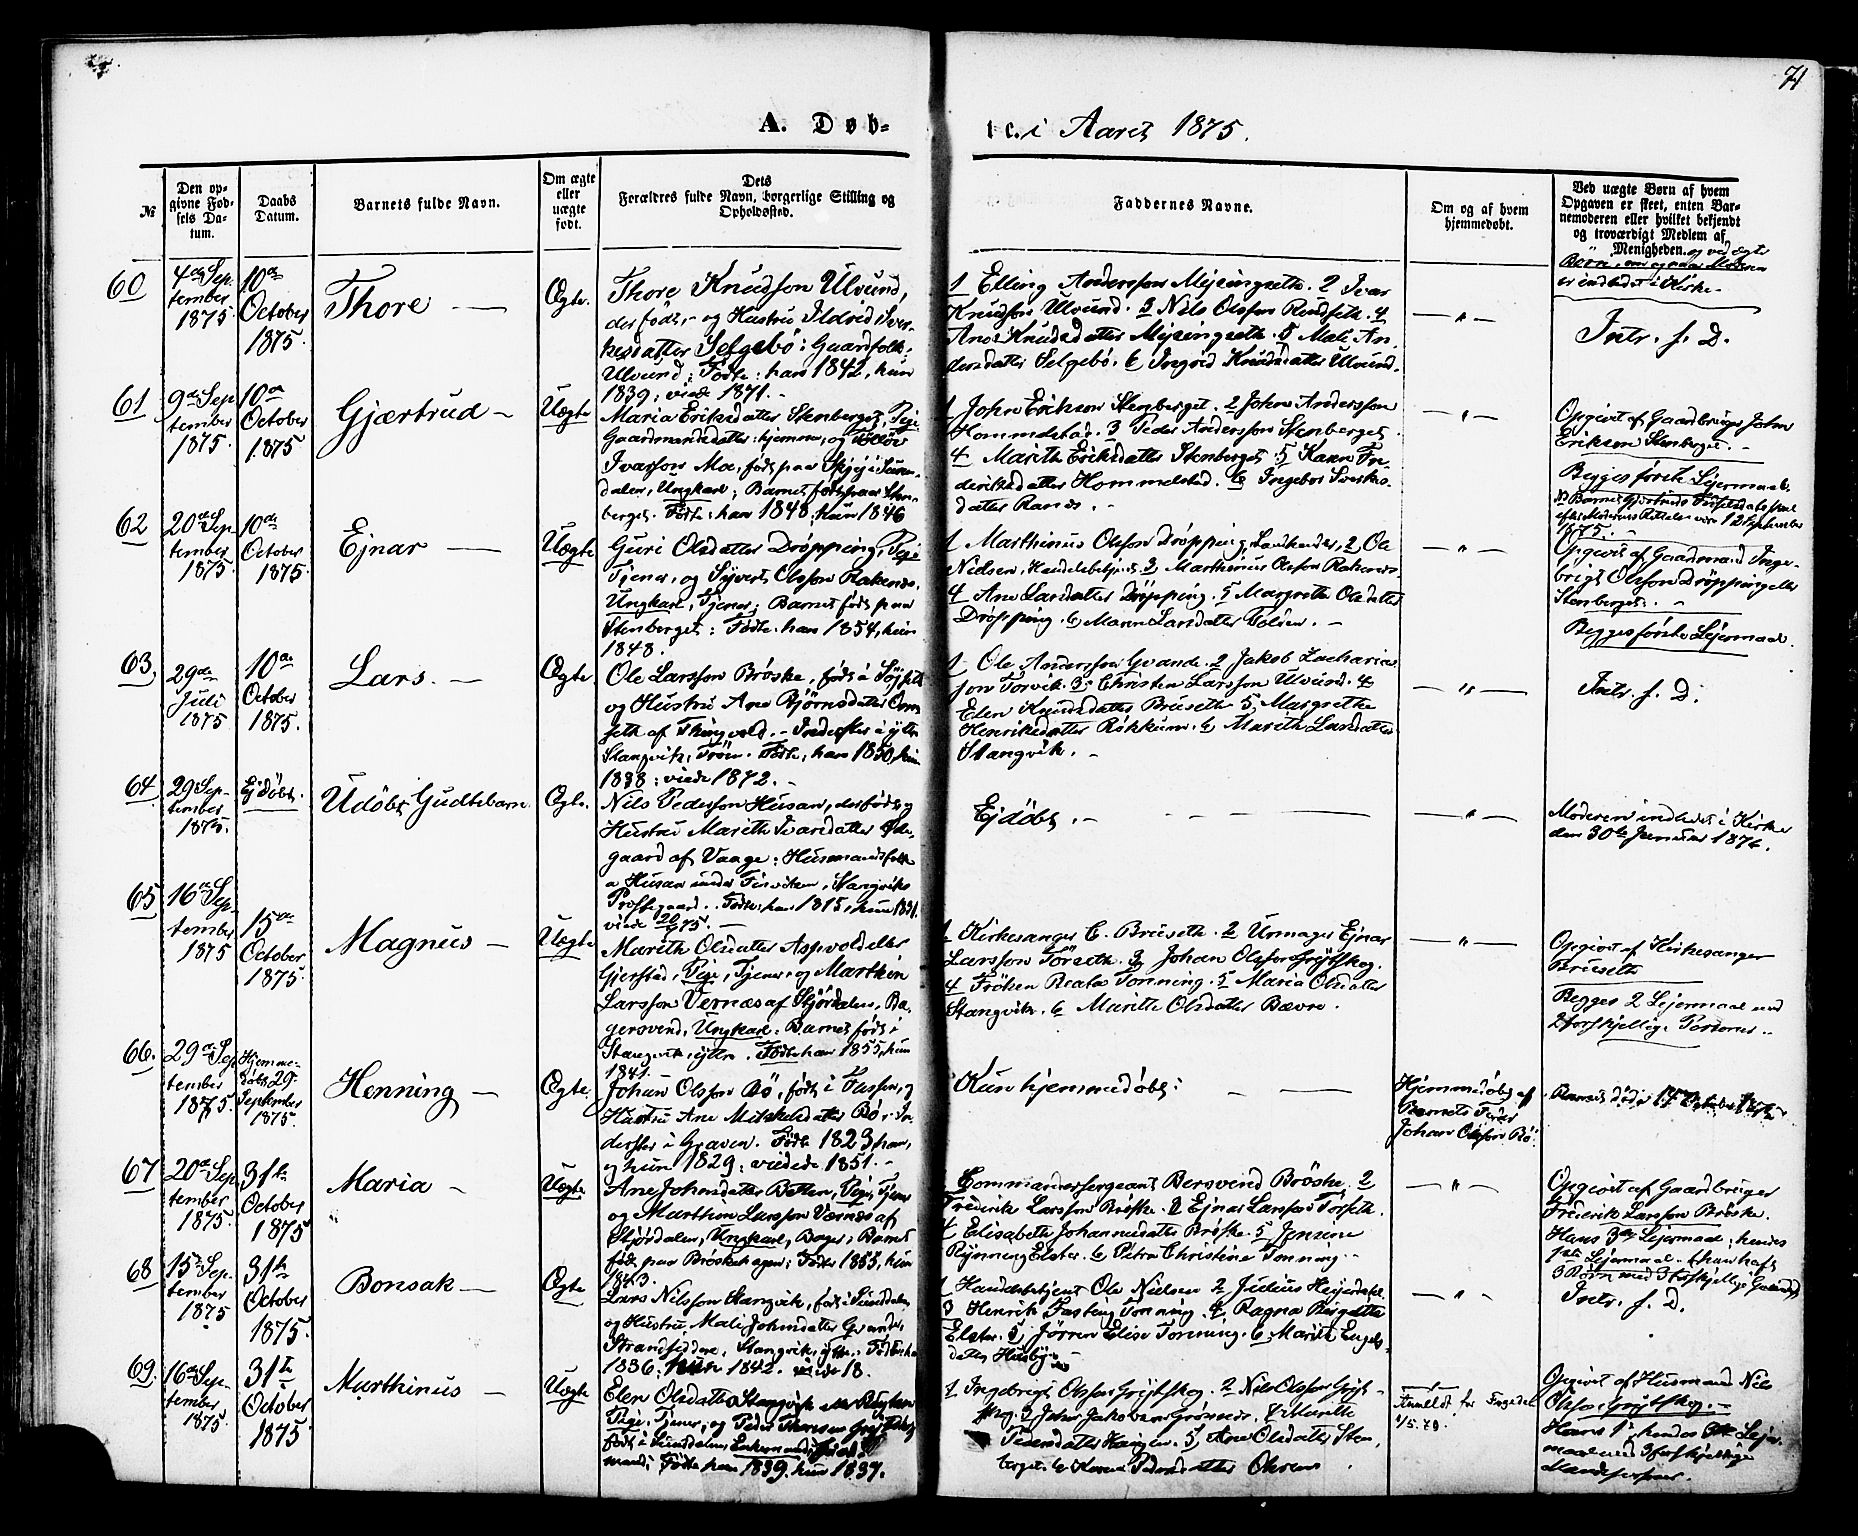 71
A. Døb-
te. i Aaret 1875.
№
Den op-
givne Fød-
sels Da-
tum.
Daabs
Datum.
Barnets fulde Navn.
Om ægte
eller
uægte
født.
Dets
Forældres fulde Navn, borgerlige Stilling og
Opholdssted.
Faddernes Navne.
Om og af hvem
hjemmedøbt.
Ved uægte Børn af hvem
Opgaven er skeet, enten Bar-
nemoderen eller hvilket bekjendt
og troværdigt Medlem af
Menigheden. og ved ægte
Børn, om og naar Moderen
er indledet i Kirke.
60
4de Sep-
tember
1875.
10de
October
1875.
Thore —
Ægte.
Thore Knudson Ulvund,
der født, og Hustru Ildrid Siver-
hesdatter Selgebø: Gaardfolk:
Ulvund; Fødte: han 1842, hun
1839; viede 1871.
1 Elling Andersson Mejsingseth. 2 Ivar
Knudson Ulvund. 3 Nils Olsson Rindseth. 4
Ane Knudsdatter Mejsingseth. 5 Mali An-
dersdatter Selgebø. 6 Ingrid Knudsdatter Ulvund.
— " —
Intr. f. D.
61
9de Sep-
tember
1875.
10de
October
1875
Gjærtrud —
Uægte
Maria Eriksdatter Stenberget, Pige
Gaardmandsdatter: hjemme, og
Ivarsson Moe, født paa i Suren-
dalen, Ungkarl; Barnet født paa Sten-
berget. Fødte: han 1848; hun 1846
1 John Erikson Stenberget. 2 John Andersson
Hommelstad. 3 Peder Andersson Stenberget.
4 Marith Eriksdatter Stenberget. 5 Karen Fre-
deriksdatter Hommelstad. 6 Ingebor Sverkes-
datter Rands. —
— " —
Opgivet af Gaardbruger John
Erikson Stenberget. —
Begges første Lejermaal.
1875.
62
20de Sep-
tember
1875.
10de
October
1875.
Ejnar —
Uægte
Guri Olsdatter Drøpping, Pige
Tjener, og Syvert Olsson Rakenes,
Ungkarl, Tjener; Barnet født paa
Stenberget: Fødte: han 1854, hun
1848.
1 Marthinus Olsson Drøpping, Landhandler, 2 Ole
Nielsen, Handelsbetjent. 3 Marthinus Olsson Rakenes.
4 Ane Larsdatter Drøpping. 5 Margrethe Olsdatter
Drøpping. 6 Maren Larsdatter Talsæn. —
— " —
Opgivet af Gaardmand Inge-
brigt Olsson Drøpping eller
Stenberget. —
Begges første Lejermaal.
63
29de
Juli
1875
10de
October
1875.
Lars. —
Ægte
Ole Larsson Brøske, født i
og Hustru Ane Bjørnsdatter Orm-
seth af Thingvold. — Inderster i ytre
Stangvik, Trøen. Fødte: han 1850, hun
1838; viede 1872. —
1 Ole Andersson Qvande. 2 Jakob Zacharias-
son Torvik. 3 Christen Larsson Ulvund. 4
Elen Knudsdatter Bruseth. 5 Margrethe
Henriksdatter Røkkum. 6 Marith Larsdatter
Stangvik. —
— " —
Intr. f. D.
64
29 Sep-
tember
1875.
Ej døbt.
Udøbt Gudtebarn.
Ægte.
Nils Pedersson Husan, der født, og
Hustru Marith Ivarsdatter Øde-
gaard af Vaage: Husmandsfolk
Husan under Stangviks
Præstegaard. Fødte: han 1815, hun 1831.
viede 1875. —
Ej døbt. —
— " —
Moderen indledet i Kirke
den 30te Januar 1876.
65
16de Sep-
tember
1875
15de
October
1875.
Magnus —
Uægte
Marith Olsdatter Aspvold eller
Gjersted, Pige, Tjener, og Marthin
Larsson Vernæs af Stjørdalen, Ba-
gersvend, Ungkarl. Barnet født i
Stangvik, ytre. Fødte: han 1855, hun
1841.
1 Kirkesanger C. Bruseth. 2 Urmager Ejnar
Larsson Torseth. 3 Johan Olsson Grytskog.
4 Frøken Beata Tonning. 5 Maria Olsdatter
Stangvik. 6 Marith Olsdatter Bævre.
— " —
Opgivet af Kirkesanger
Bruseth
Begges 2 Lejermaal med
2 forskjellige Personer.
66.
29de Sep-
tember
1875.
Hjemme-
døbt 29.
September
1875.
Henning —
Ægte.
Johan Olsson Bø, født i Fussen, og
Hustru Ane Mikkelsdatter Bø: In-
derster i Graven. Fødte 1823 han,
og hun 1829; viede 1851. —
Kun hjemmedøbt:
Hjemmedøbt af
Barnets Fader
Johan Olsson Bø.
67
20de Sep-
tember
1875.
31te
October
1875
Maria —
Uægte
Ane Johnsdatter Betten, Pige, Tjener
og Marthin Larsson Værnæs af
Stjørdalen, Ungkarl, Bager; Barnet
født paa Brøskehagen; Fødte 1855, hun
1843.
1 Commandersergeant Bersvend Brøske. 2
Frederik Larsson Brøske. 3 Ejnar Larsson Torseth.
4 Elisabeth Johannesdatter Brøske. 5 Jensine
Rynning Elster. 6 Petra Christine Tonning.
— " —
Opgivet af Gaardbruger
Frederik Larsson Brøske.
Hans 3die Lejermaal; hendes
1ste Lejermaal.
68
15de Sep-
tember
1875
31te
October
1875.
Bonsak —
Ægte
Lars Nilsson Stangvik, født i Sundalen,
og Hustru Mali Johnsdatter Qvande,
Strandsiddere, Stangvik, ytre. Født: han
1836, hun 1842. viede 18.
1 Handelsbetjent Ole Nielsen 2 Julius Hejerdahl.
3 Henrik Fasting Tonning. 4 Ragna Birgitte
Elster. 5 Jørren Elise Tonning. 6 Marith Engels-
datter Husby.
— " —
Intr. f. D.
69
16de Sep-
tember
1875.
31te
October
1875
Marthinus —
Uægte
Elen Olsdatter Stangvik eller
Pige, Tjener, og Peder
født i Sundalen,
Fødte han 1839. hun 1837.
1 Ingebrigt Olsson Grytskog. 2 Nils Olsson Gryt-
skog. 3 John Jakobsen Grønnes. 4 Marith
Pedersdatter Haugen. 5 Ane Olsdatter Sten-
berget. 6 Karen Pedersdatter
Anmeldt for Fogeden
1/5.79.
Opgivet af Husmand Nils
Olsson Grytskog. —
Hans 1, hendes Lejer-
maal med 3 forskjellige
Mandspersoner.